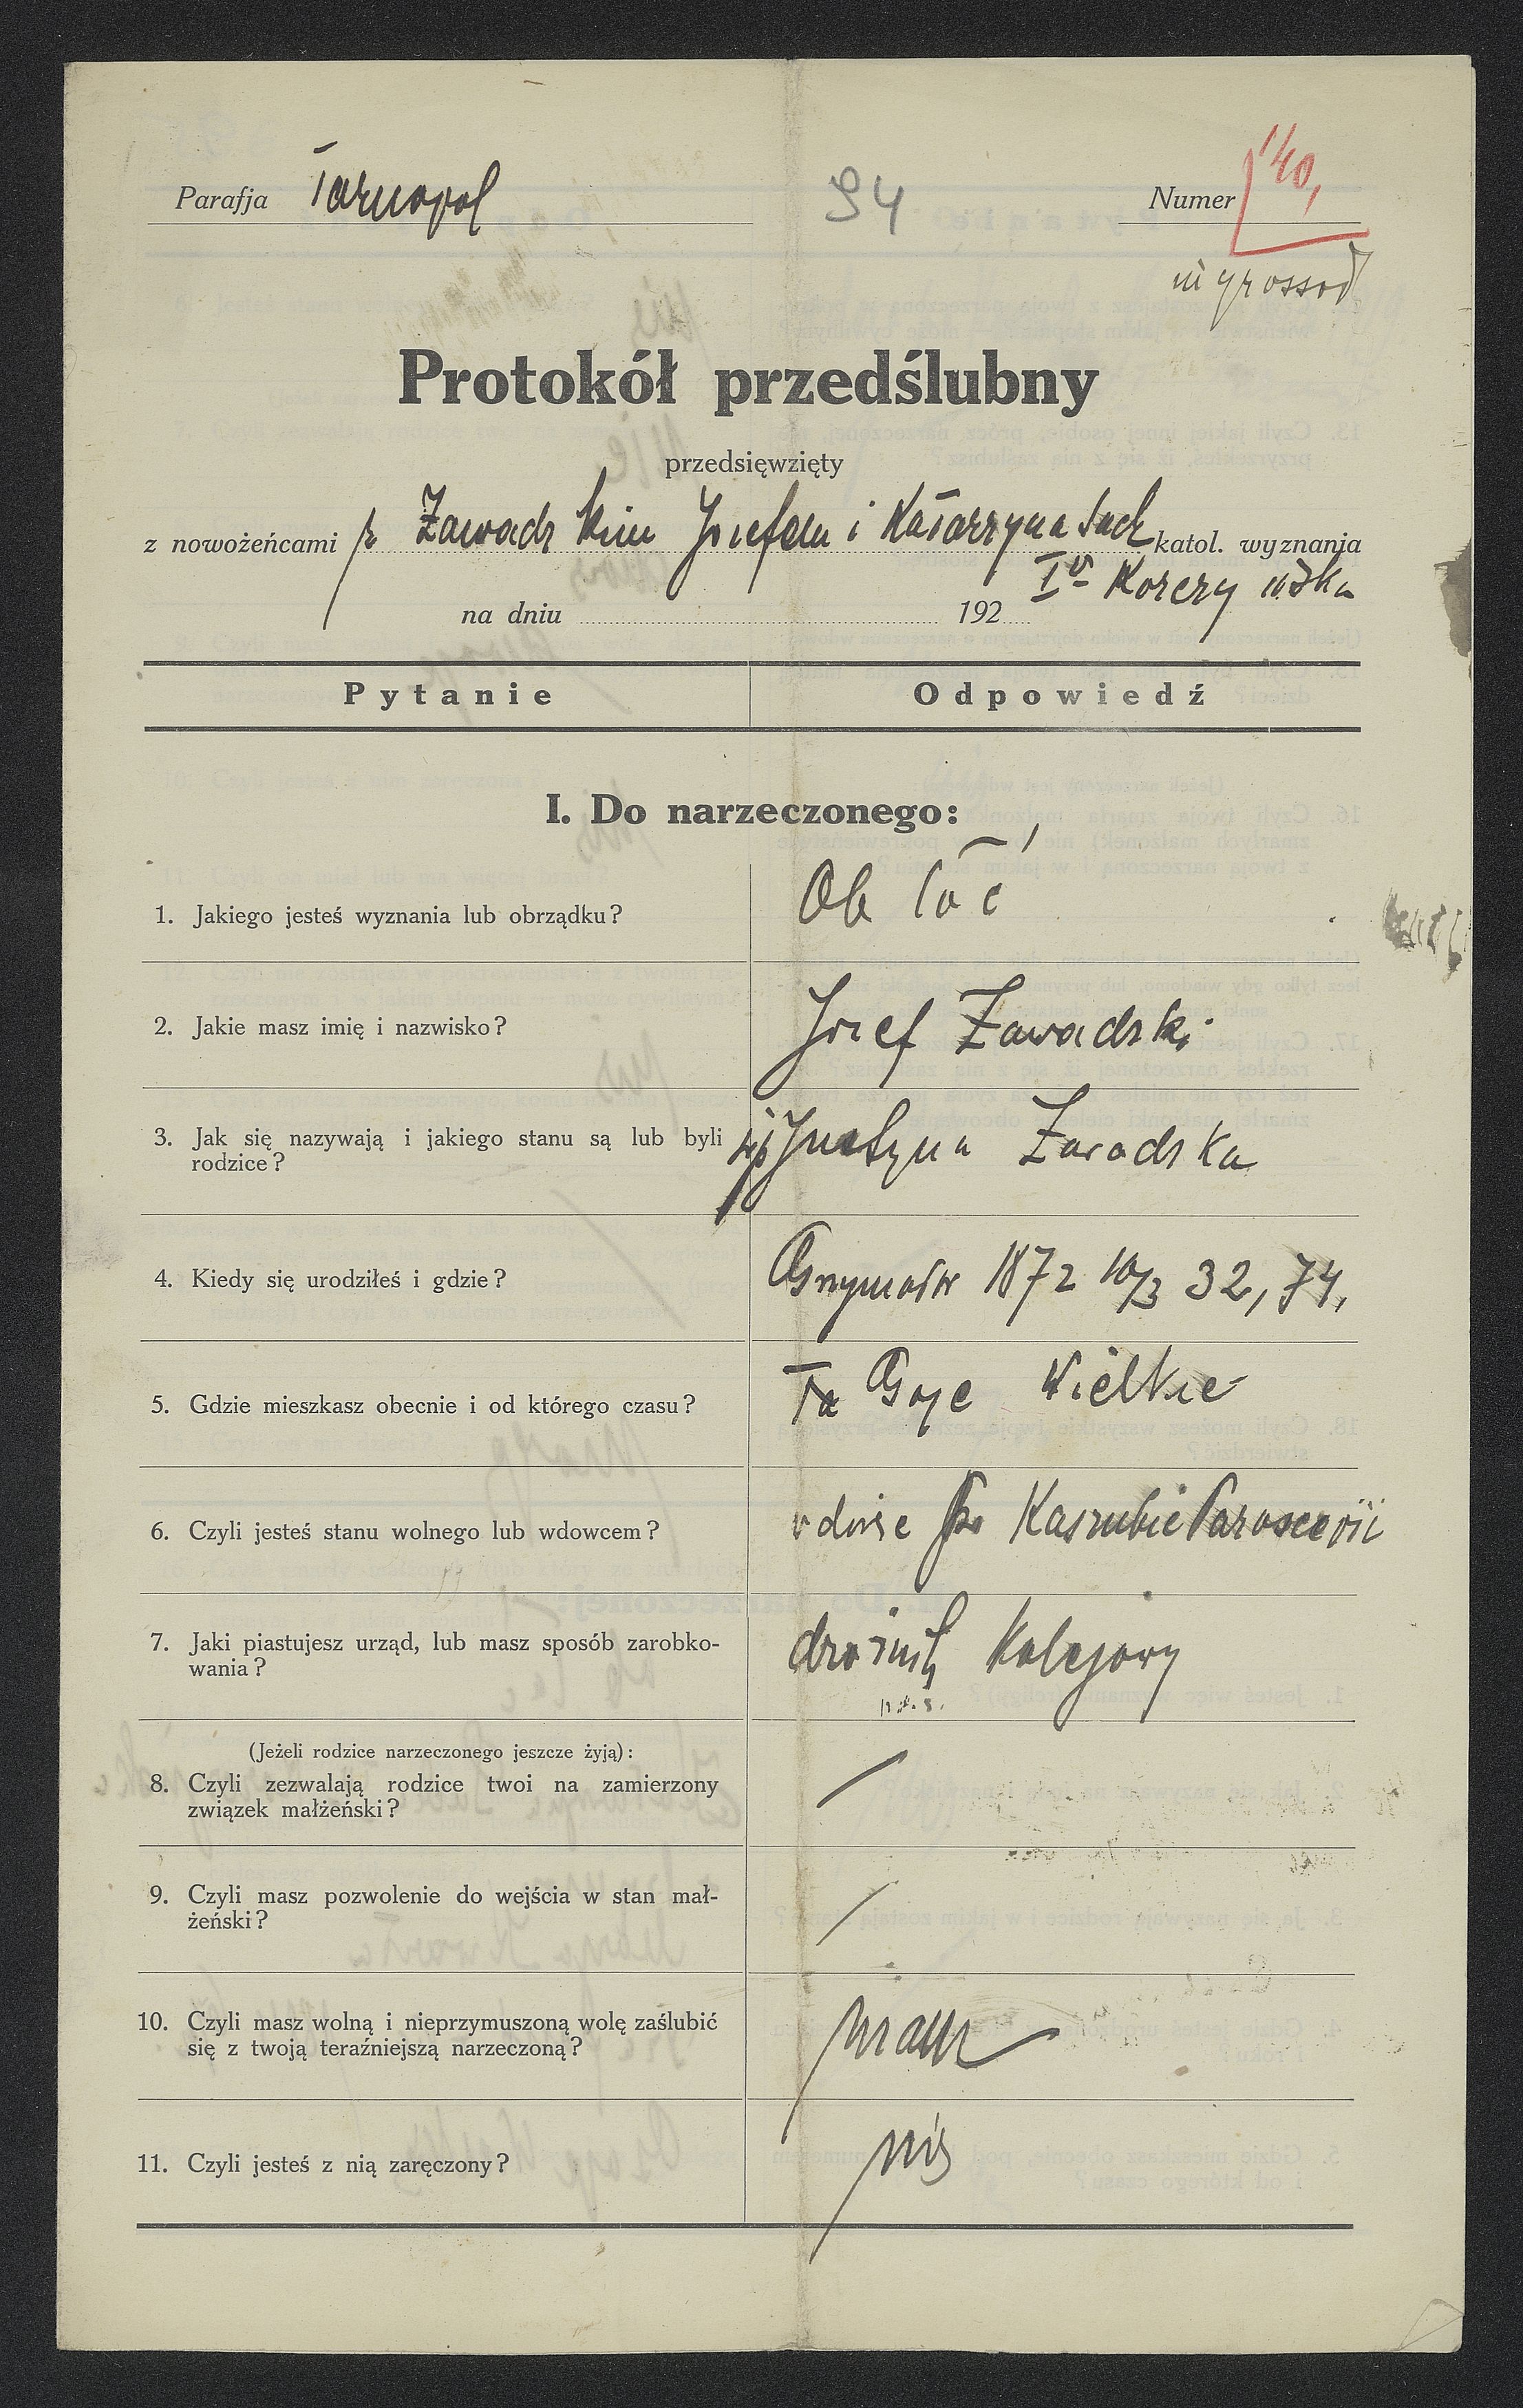 Parafja Tarnopol 94 Numer 140,
ingrossod
Protokół przedślubny
przedsięwzięty
z nowożeńcami z Zawadzkim Józefem i Katarzyna Sack katol. wyznania
Iº Korczyńska
na dniu 192
Pytanie Odpowiedź
I. Do narzeczonego:
1. Jakiego jesteś wyznania lub obrządku? Ob łać
2. Jakie masz imię i nazwisko? Józef Zawadzki
3. Jak się nazywają i jakiego stanu są lub byli Justyna Zawadzka
rodzice?
4. Kiedy się urodziłeś i gdzie? Grzymałów 1872 10/3 32, 74,
5. Gdzie mieszkasz obecnie i od którego czasu? Ta Gaje Wielkie
6. Czyli jesteś stanu wolnego lub wdowcem? wdowiec po Kaszubie Parascevii
7. Jaki piastujesz urząd, lub masz sposób zarobko- drożnik kolejowy
wania?
(Jeżeli rodzice narzeczonego jeszcze żyją):
8. Czyli zezwalają rodzice twoi na zamierzony
związek małżeński?
9. Czyli masz pozwolenie do wejścia w stan mał-
żeński?
10. Czyli masz wolną i nieprzymuszoną wolę zaślubić mam
się z twoją teraźniejszą narzeczoną?
11. Czyli jesteś z nią zaręczony? nie